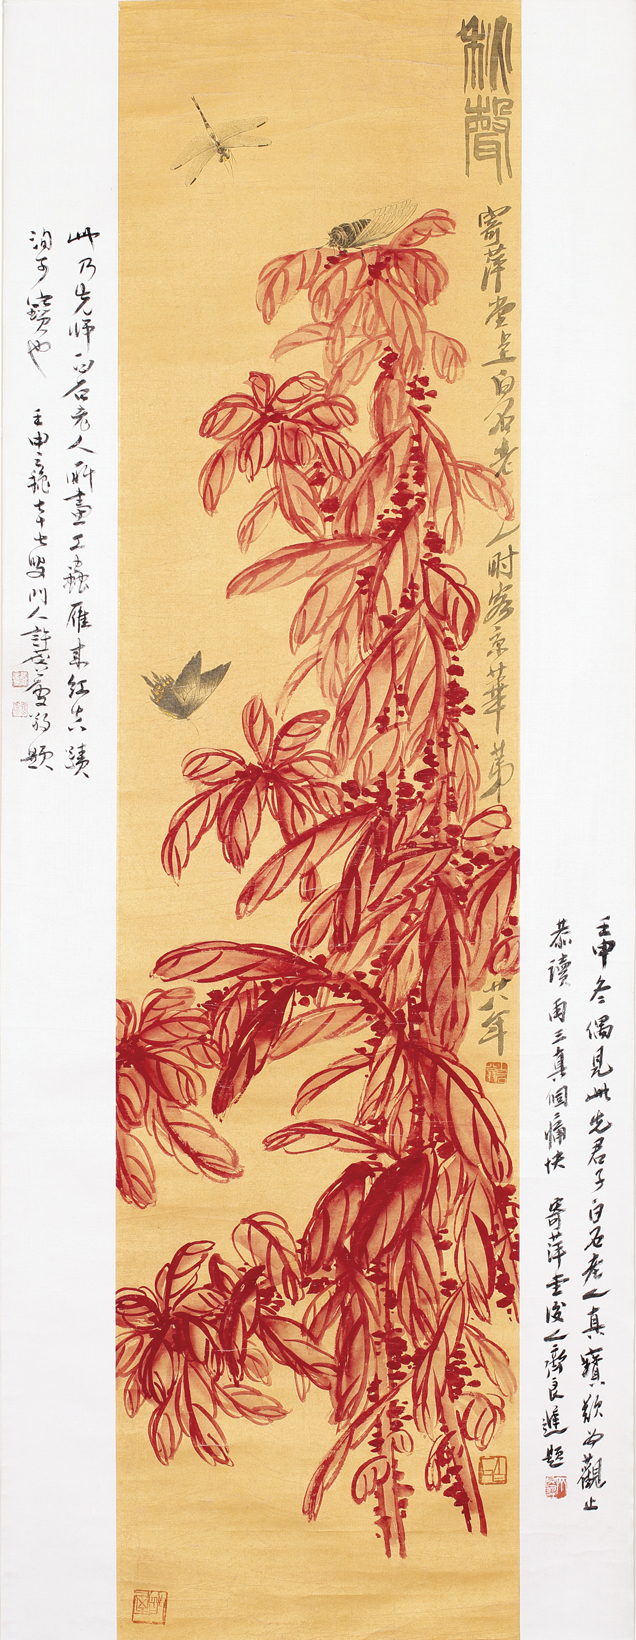 秋聲
寄萍堂上白石老人時客京華第
廿八年
壬申冬偶見此先君子白石老人真寶歎為觀止
恭讀再三真個痛快 寄萍堂後人齊良遲題
此乃先師白石老人所畫工蟲雁來紅真蹟
洵可寶也 壬申之秋七十七叟門人許麐廬敬題